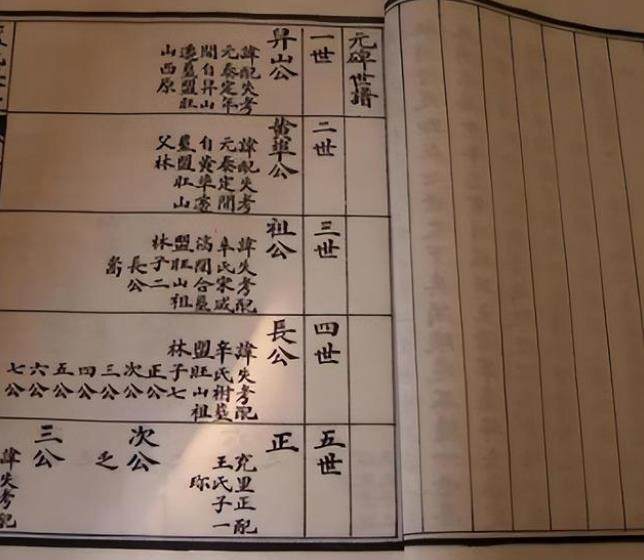 元碑世譜
一世
昇山公
諱配失考
元泰定年
間自昇山
遷墓盟旺
山西原
二世
黄埠公
諱配失考
元泰定間
自黄埠遷
墓盟旺山
父林
三世
祖公
諱失考配
牟氏宋咸
淳間合墓
盟旺山祖
林子二
長公
四世
長公
諱失考配
辛氏樹墓
盟旺山祖
林子七
正公
次公
三公
四公
五公
六公
七公
五世
正
充里正配
王氏子一
珎
次公
乏
三公
諱失考配